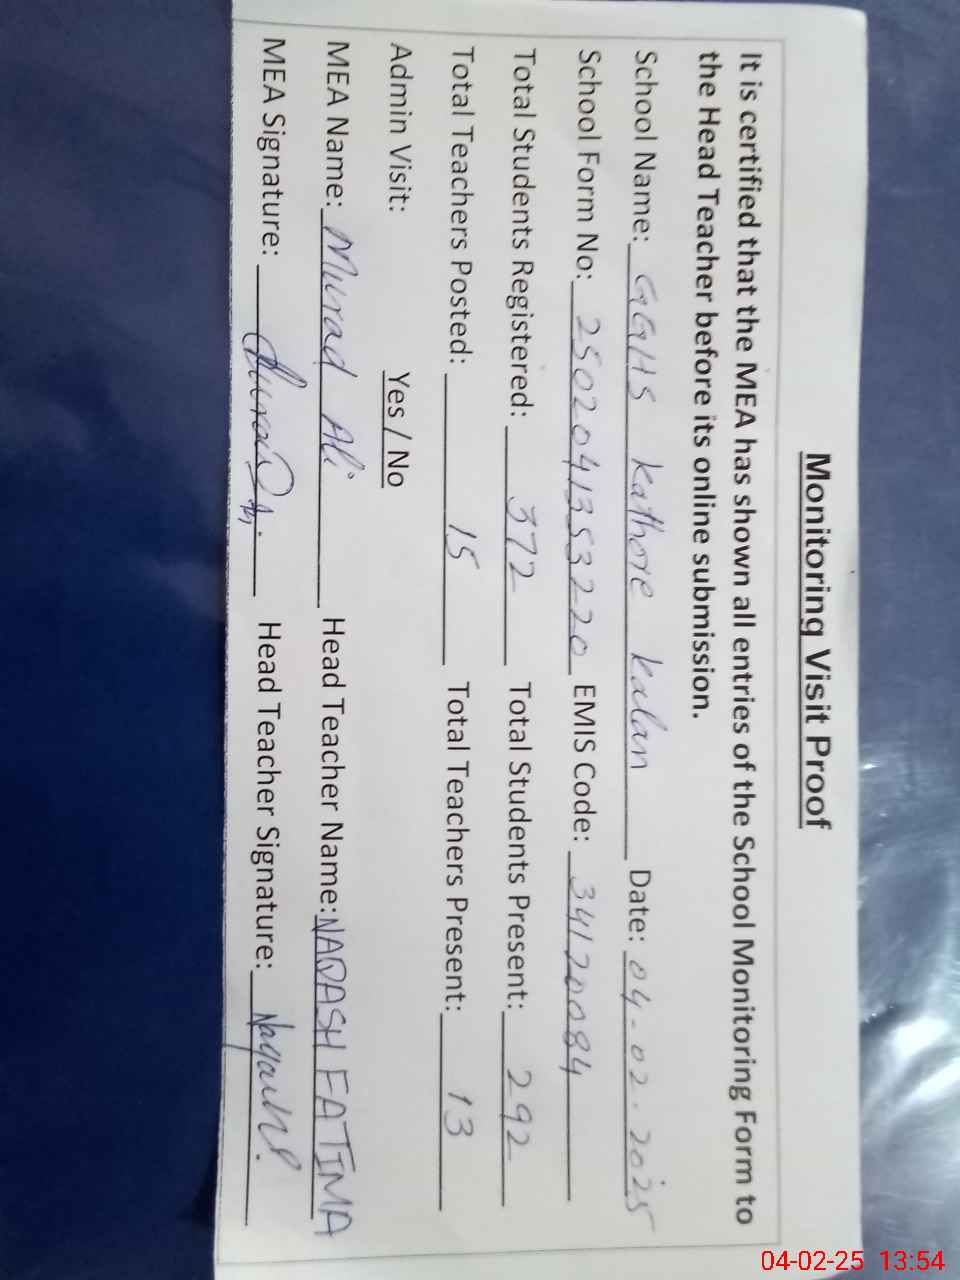 Monitoring Visit Proof
It is certified that the MEA has shown all entries of the School Monitoring Form to
the Head Teacher before its online submission.
School Name: GGHS Kathore Kalan Date: 04-02-2025
School Form No: 2502041353220 EMIS Code: 34120084
Total Students Registered: 372 Total Students Present: 292
Total Teachers Posted: 15 Total Teachers Present: 13
Admin Visit: Yes / No
MEA Name: Murad Ali Head Teacher Name: NAQASH FATIMA
MEA Signature: Head Teacher Signature:
04-02-25 13:54